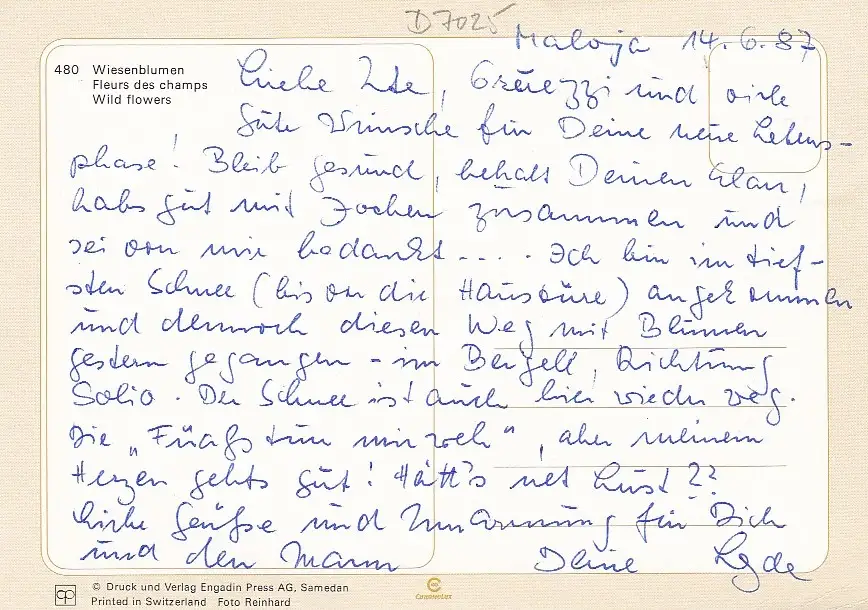 D 7025
Maloja 14.6.87
480 Wiesenblumen
Fleurs des champs
Wild flowers
Liebe Ute, Grüezzi und viele
gute Wünsche für Deine neue Lebens-
phase! Bleib gesund, behalt Deinen Elan,
habs gut mit Jochen zusammen und
sei von mir bedankt.... Ich bin im tief-
sten Schnee (bis vor die Haustüre) angekommen
und dennoch diesen Weg mit Blumen
gestern gegangen - im Bergell, Richtung
Solio. Der Schnee ist auch hier wieder weg.
Die „Füaß tun mir weh", aber meinem
Herzen gehts gut! Hätt's net Lust??
Liebe Grüße und Umarmung für Dich
und den Mann Deine
cp © Druck und Verlag Engadin Press AG, Samedan
Printed in Switzerland Foto Reinhard